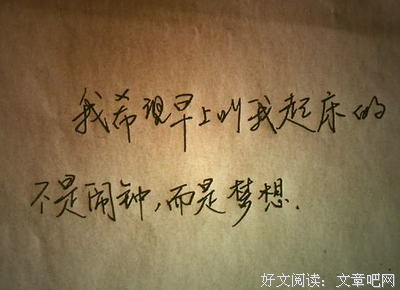 我希望早上叫我起床的
不是闹钟,而是梦想.
好文阅读：文章吧网